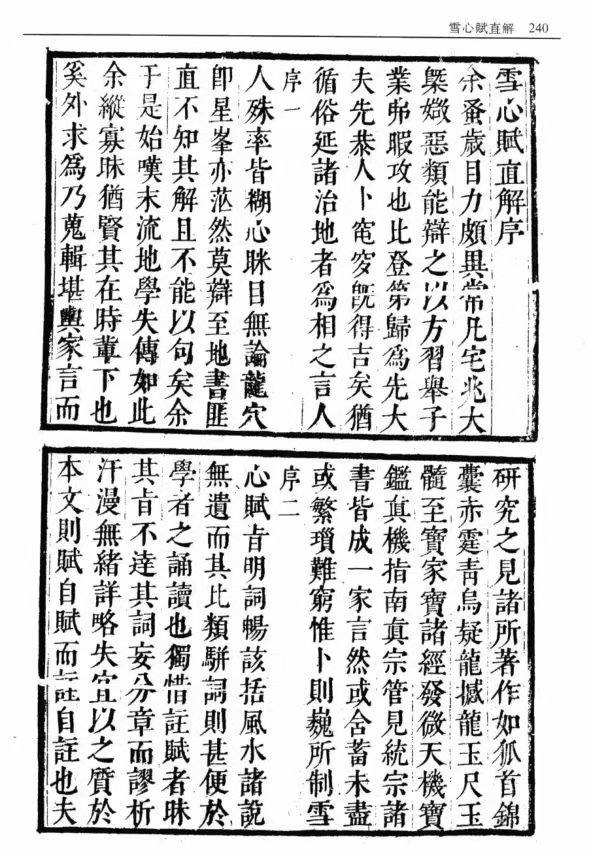 雪心賦直解 240
雪心賦直解序
余蚤歲目力頗異常凡宅兆大
槩媺惡類能辯之以方習舉子
業弗暇攻也比登第歸為先大
夫先恭人卜窀穸旣得吉矣猶
循俗延諸治地者為相之言人
序一
人殊率皆糊心眯目無論龍穴
卽星峯亦茫然莫辯至地書匪
直不知其解且不能以句矣余
于是始嘆末流地學失傳如此
余縱寡昧猶賢其在時輩下也
奚外求為乃蒐輯堪輿家言而
研究之見諸所著作如狐首錦
囊赤霆靑烏疑龍撼龍玉尺玉
髓至寶家寶諸經發微天機寶
鑑眞機指南眞宗管見統宗諸
書皆成一家言然或含蓄未盡
或繁瑣難窮惟卜則巍所制雪
序二
心賦旨明詞暢該括風水諸說
無遺而其比類駢詞則甚便於
學者之誦讀也獨惜註賦者昧
其旨不達其詞妄分章而謬析
汗漫無緒詳略失宜以之質於
本文則賦自賦而註自註也夫